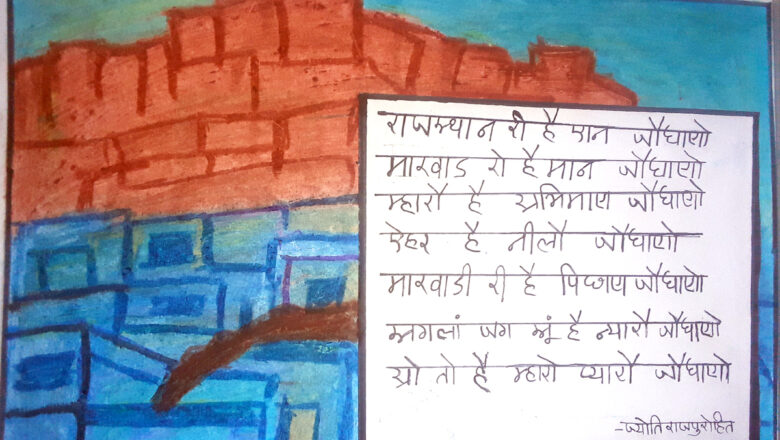 राजस्थान री है शान जौधाणो
मारवाड रो है मान जौधाणो
म्हारौ है अभिमाण जौधाणो
शहर है नीलौ जौधाणो
मारवाडी री है पिछाण जौधाणो
सगलां जग सूं है न्यारौ जौधाणो
ओ तो है म्हारो प्यारौ जौधाणो
-ज्योति राजपुरोहित